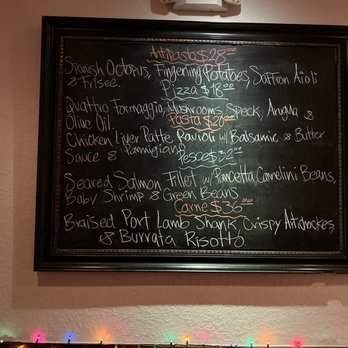 Antipasto $28.00
Spanish Octopus, Fingerling Potatoes, Saffron Aioli
& Frisee.
Pizza $18.00
Quattro Formaggio, Mushrooms, Speck, Arugula &
Olive Oil.
Pasta $26.00
Chicken Liver Patte Ravioli w/ Balsamic & Butter
Sauce & Parmigiano
Pesce $32.00
Seared Salmon Fillet w/ Pancetta, Cannelini Beans,
Baby Shrimp & Green Beans
Carne $36.00
Braised Port Lamb Shank, Crispy Artichokes,
& Burrata Risotto